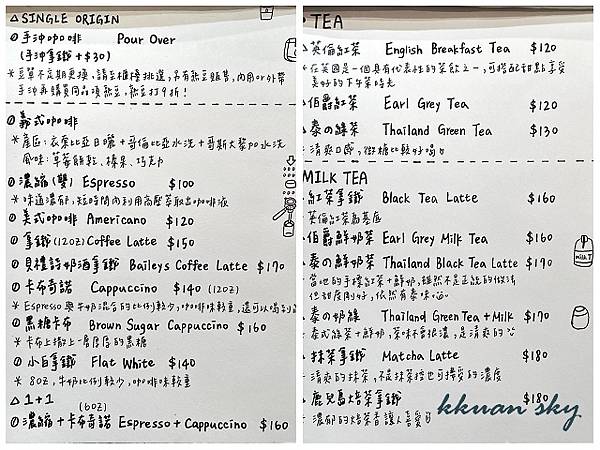 △ SINGLE ORIGIN
手沖咖啡 Pour Over
(手沖拿鐵+$30)
*豆單不定期更換、請至櫃檯挑選,另有熟豆販售,內用or外帶
手沖再購買同品項熟豆,熟豆打9折!
義式咖啡
*產區:衣索比亞日曬+哥倫比亞水洗+哥斯大黎加水洗
風味:草莓餅乾、榛果、巧克力
濃縮(雙) Espresso $100
*味道濃郁,短時間內利用高壓萃取出咖啡液
美式咖啡 Americano $120
拿鐵(12oz) Coffee Latte $150
貝禮詩奶酒拿鐵 Baileys Coffee Latte $170
卡布奇諾 Cappuccino $140 (12oz)
*Espresso與牛奶混合的比例較少,咖啡味較重,還可以喝到
黑糖卡布 Brown Sugar Cappuccino $160
*卡布上撒上一層厚厚的黑糖
小白拿鐵 Flat White $140
*8oz,牛奶比例較少,咖啡味較重
△ 1+1
(6oz)
濃縮+卡布奇諾 Espresso+Cappuccino $160
TEA
英倫紅茶 English Breakfast Tea $120
*在英國是一個具有代表性的茶飲之一,可搭配甜點享受
美好的下午茶時光
伯爵紅茶 Earl Grey Tea $120
泰の綠茶 Thailand Green Tea $130
清爽口感,微糖比較好喝
MILK TEA
紅茶拿鐵 Black Tea Latte $160
英倫紅茶為基底
伯爵鮮奶茶 Earl Grey Milk Tea $160
泰の鮮奶茶 Thailand Black Tea Latte $170
當地的手標紅茶+鮮奶,雖然不是正統的做法
但甜度剛好,依然有泰味
泰の奶綠 Thailand Green Tea+Milk $170
泰式綠茶+鮮奶,茶味不會很濃,是清爽的
抹茶拿鐵 Matcha Latte $180
清爽的抹茶,不是抹茶控也可接受的濃度
鹿兒島焙茶拿鐵 $180
濃郁的焙茶香讓人喜愛
milk T
kkuan sky